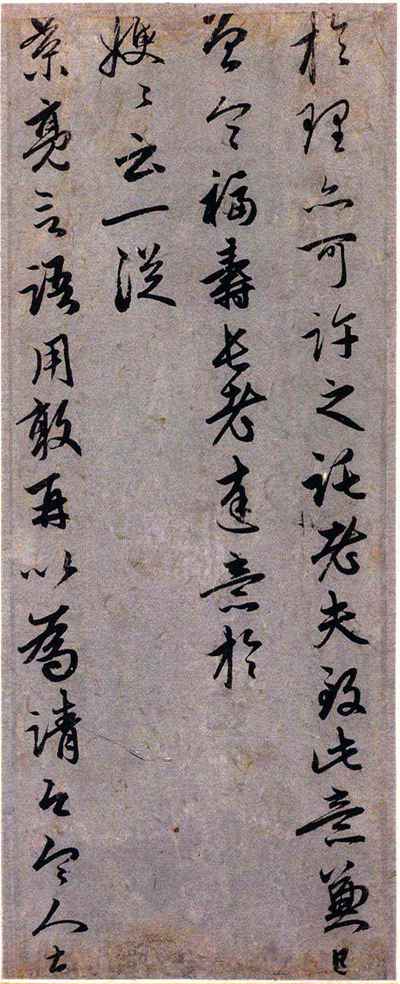 於理亦可許之託老夫致此意兼已
曾令福壽長老達意於
嫂〻云一從
景亮言語用敢再以為請乞令人去